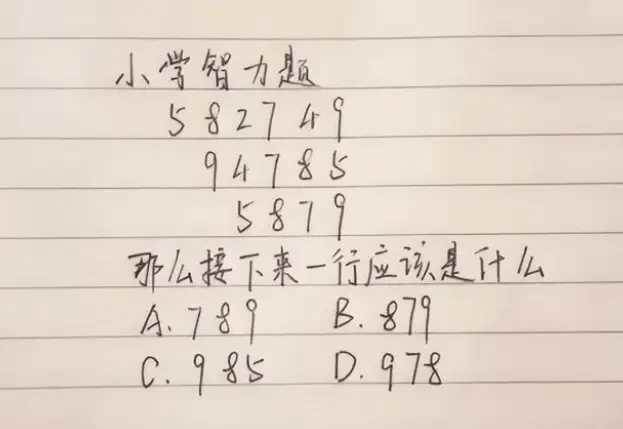 小学智力题
582749
94785
5879
那么接下来一行应该是什么
A. 789 B. 879
C. 985 D. 978